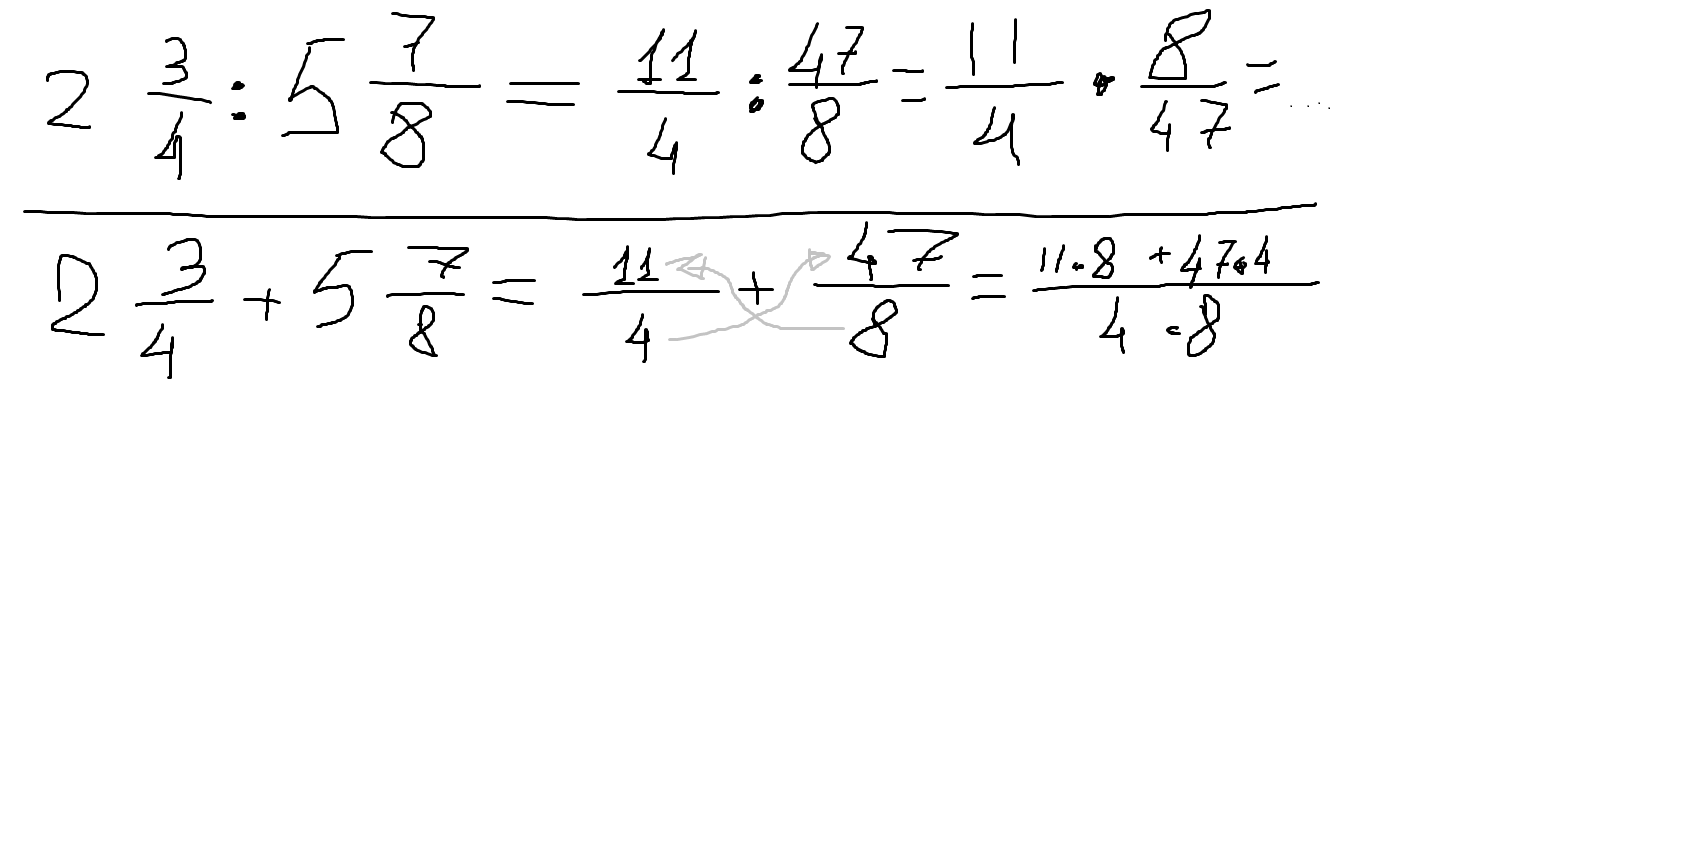 2 3/4 : 5 7/8 = 11/4 : 47/8 = 11/4 · 8/47 = ....
2 3/4 + 5 7/8 = 11/4 + 47/8 = (11·8 + 47·4)/(4·8)